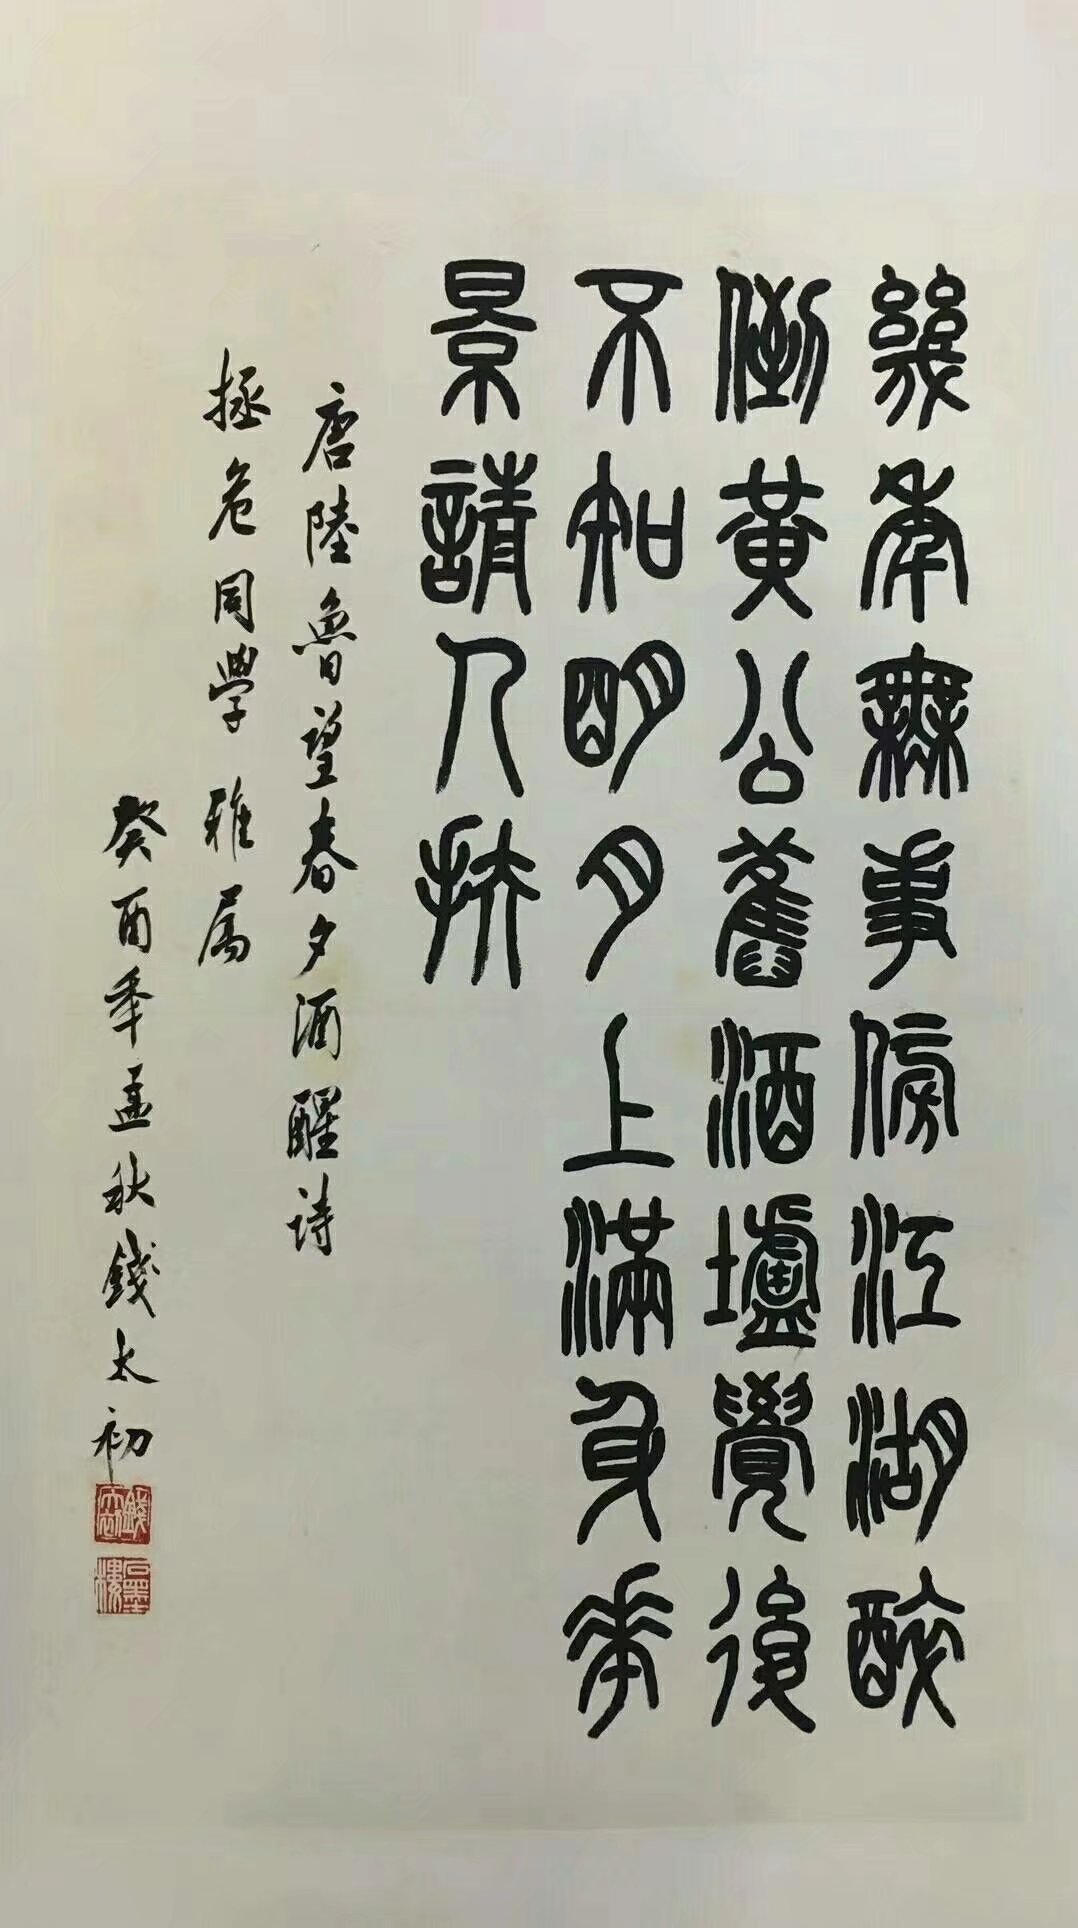 幾年無事傍江湖醉
倒黃公舊酒壚覺後
不知明月上滿身花
景請人扶
唐陸魯望春夕酒醒詩
拯危同學雅属
癸酉年孟秋錢太初